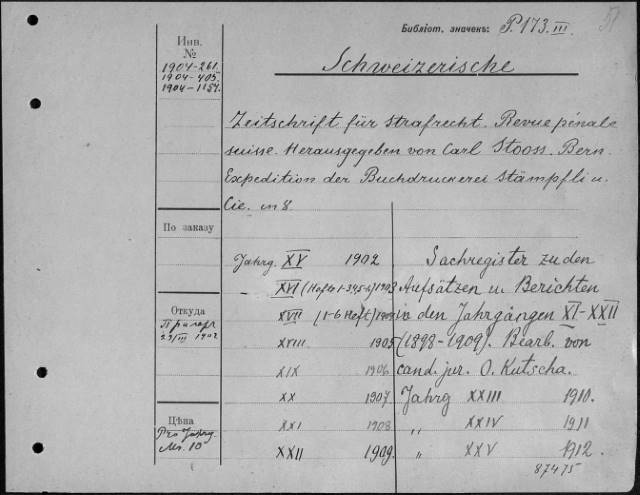 Библіот. значекъ: P. 173. III.
51
Инв.
№
1904-261.
1904-405.
1904-1157.
Schweizerische
Zeitschrift für Strafrecht. Revue pénale
suisse. Herausgegeben von Carl Stooss. Bern.
Expedition der Buchdruckerei Stämpfli u.
Cie. in 8.
По заказу
Откуда
29/III 1902
Цѣна
Pro Jahrg.
Mr. 10
Jahrg. XV 1902
XVI (Hefte 1-3,4,5-6) 1903
XVII (1-6 Heft)
XVIII 1905
XIX 1906
XX 1907
XXI 1908
XXII 1909.
Sachregister zu den
Aufsätzen u. Berichten
in den Jahrgängen XI-XXII
(1898-1909). Bearb. von
cand. jur. O. Kutscha.
Jahrg XXIII 1910.
„ XXIV 1911
„ XXV 1912.
87475